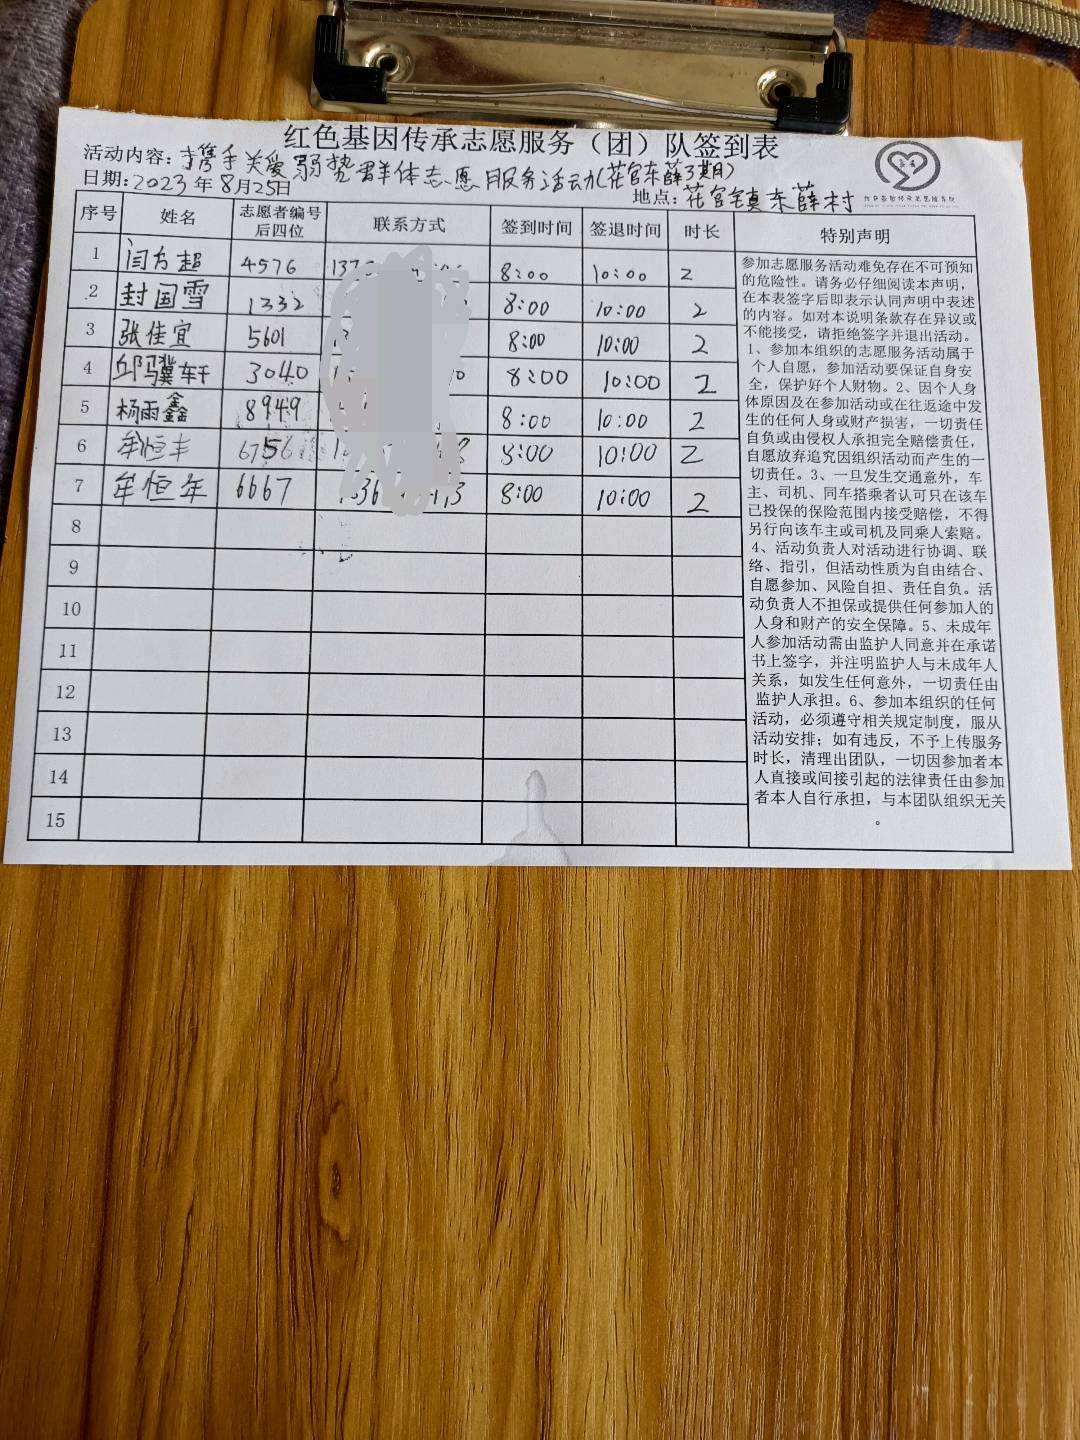 红色基因传承志愿服务（团）队签到表
活动内容：携手关爱弱势群体志愿服务活动(花官东薛3期)
日期：2023年8月25日
地点：花官镇东薛村
序号 姓名 志愿者编号后四位 联系方式 签到时间 签退时间 时长 特别声明
1 闫方超 4576 137 8:00 10:00 2
2 封国雪 1332 8:00 10:00 2
3 张佳宜 5601 8:00 10:00 2
4 邱骥轩 3040 8:00 10:00 2
5 杨雨鑫 8949 8:00 10:00 2
6 牟恒丰 6756 8:00 10:00 2
7 牟恒年 6667 8:00 10:00 2
8
9
10
11
12
13
14
15
参加志愿服务活动难免存在不可预知
的危险性。请务必仔细阅读本声明，
在本表签字后即表示认同声明中表述
的内容。如对本说明条款存在异议或
不能接受，请拒绝签字并退出活动。
1、参加本组织的志愿服务活动属于
个人自愿，参加活动要保证自身安
全，保护好个人财物。2、因个人身
体原因及在参加活动或在往返途中发
生的任何人身或财产损害，一切责任
自负或由侵权人承担完全赔偿责任，
自愿放弃追究因组织活动而产生的一
切责任。3、一旦发生交通意外，车
主、司机、同车搭乘者认可只在该车
已投保的保险范围内接受赔偿，不得
另行向该车主或司机及同乘人索赔。
4、活动负责人对活动进行协调、联
络、指引，但活动性质为自由结合、
自愿参加、风险自担、责任自负。活
动负责人不担保或提供任何参加人的
人身和财产的安全保障。5、未成年
人参加活动需由监护人同意并在承诺
书上签字，并注明监护人与未成年人
关系，如发生任何意外，一切责任由
监护人承担。6、参加本组织的任何
活动，必须遵守相关规定制度，服从
活动安排；如有违反，不予上传服务
时长，清理出团队，一切因参加者本
人直接或间接引起的法律责任由参加
者本人自行承担，与本团队组织无关
。